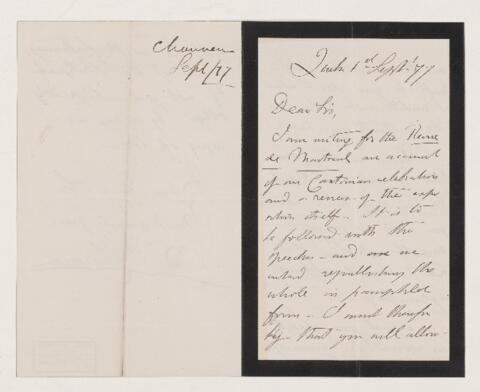 Chauveau
Sept/77
Quebec 1st Sept. '77
Dear Sir,
I am writing for the Revue
de Montreal an account
of our Caxtonian celebration
and a review of the expo
sition itself. It is to
be followed with the
speeches - and we
intend republishing the
whole in pamphlet
form - I must therefore
beg - that you will allow